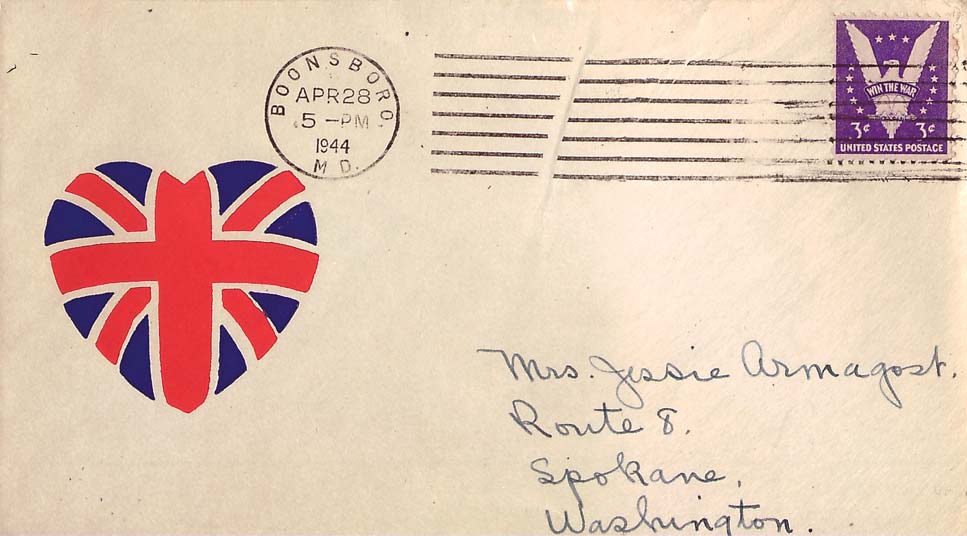 BOONSBORO
APR 28
5 -PM
1944
MD.
WIN THE WAR
3¢ 3¢
UNITED STATES POSTAGE
Mrs. Jessie Armagost.
Route 8.
Spokane,
Washington.